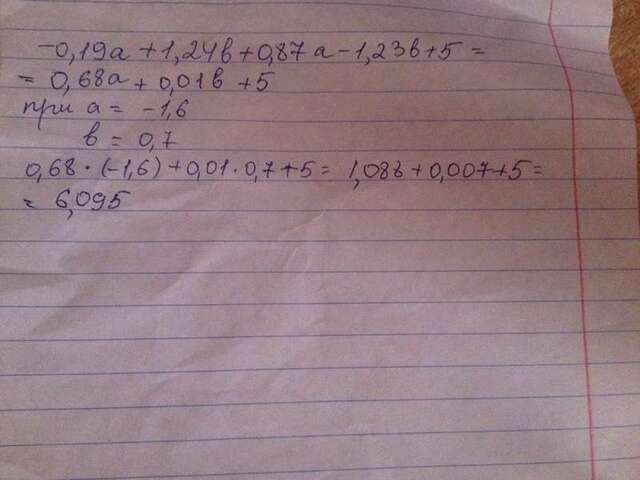 -0,19а + 1,24в + 0,87а - 1,23в + 5 =
= 0,68а + 0,01в + 5
при а = -1,6
в = 0,7
0,68 · (-1,6) + 0,01 · 0,7 + 5 = 1,088 + 0,007 + 5 =
= 6,095